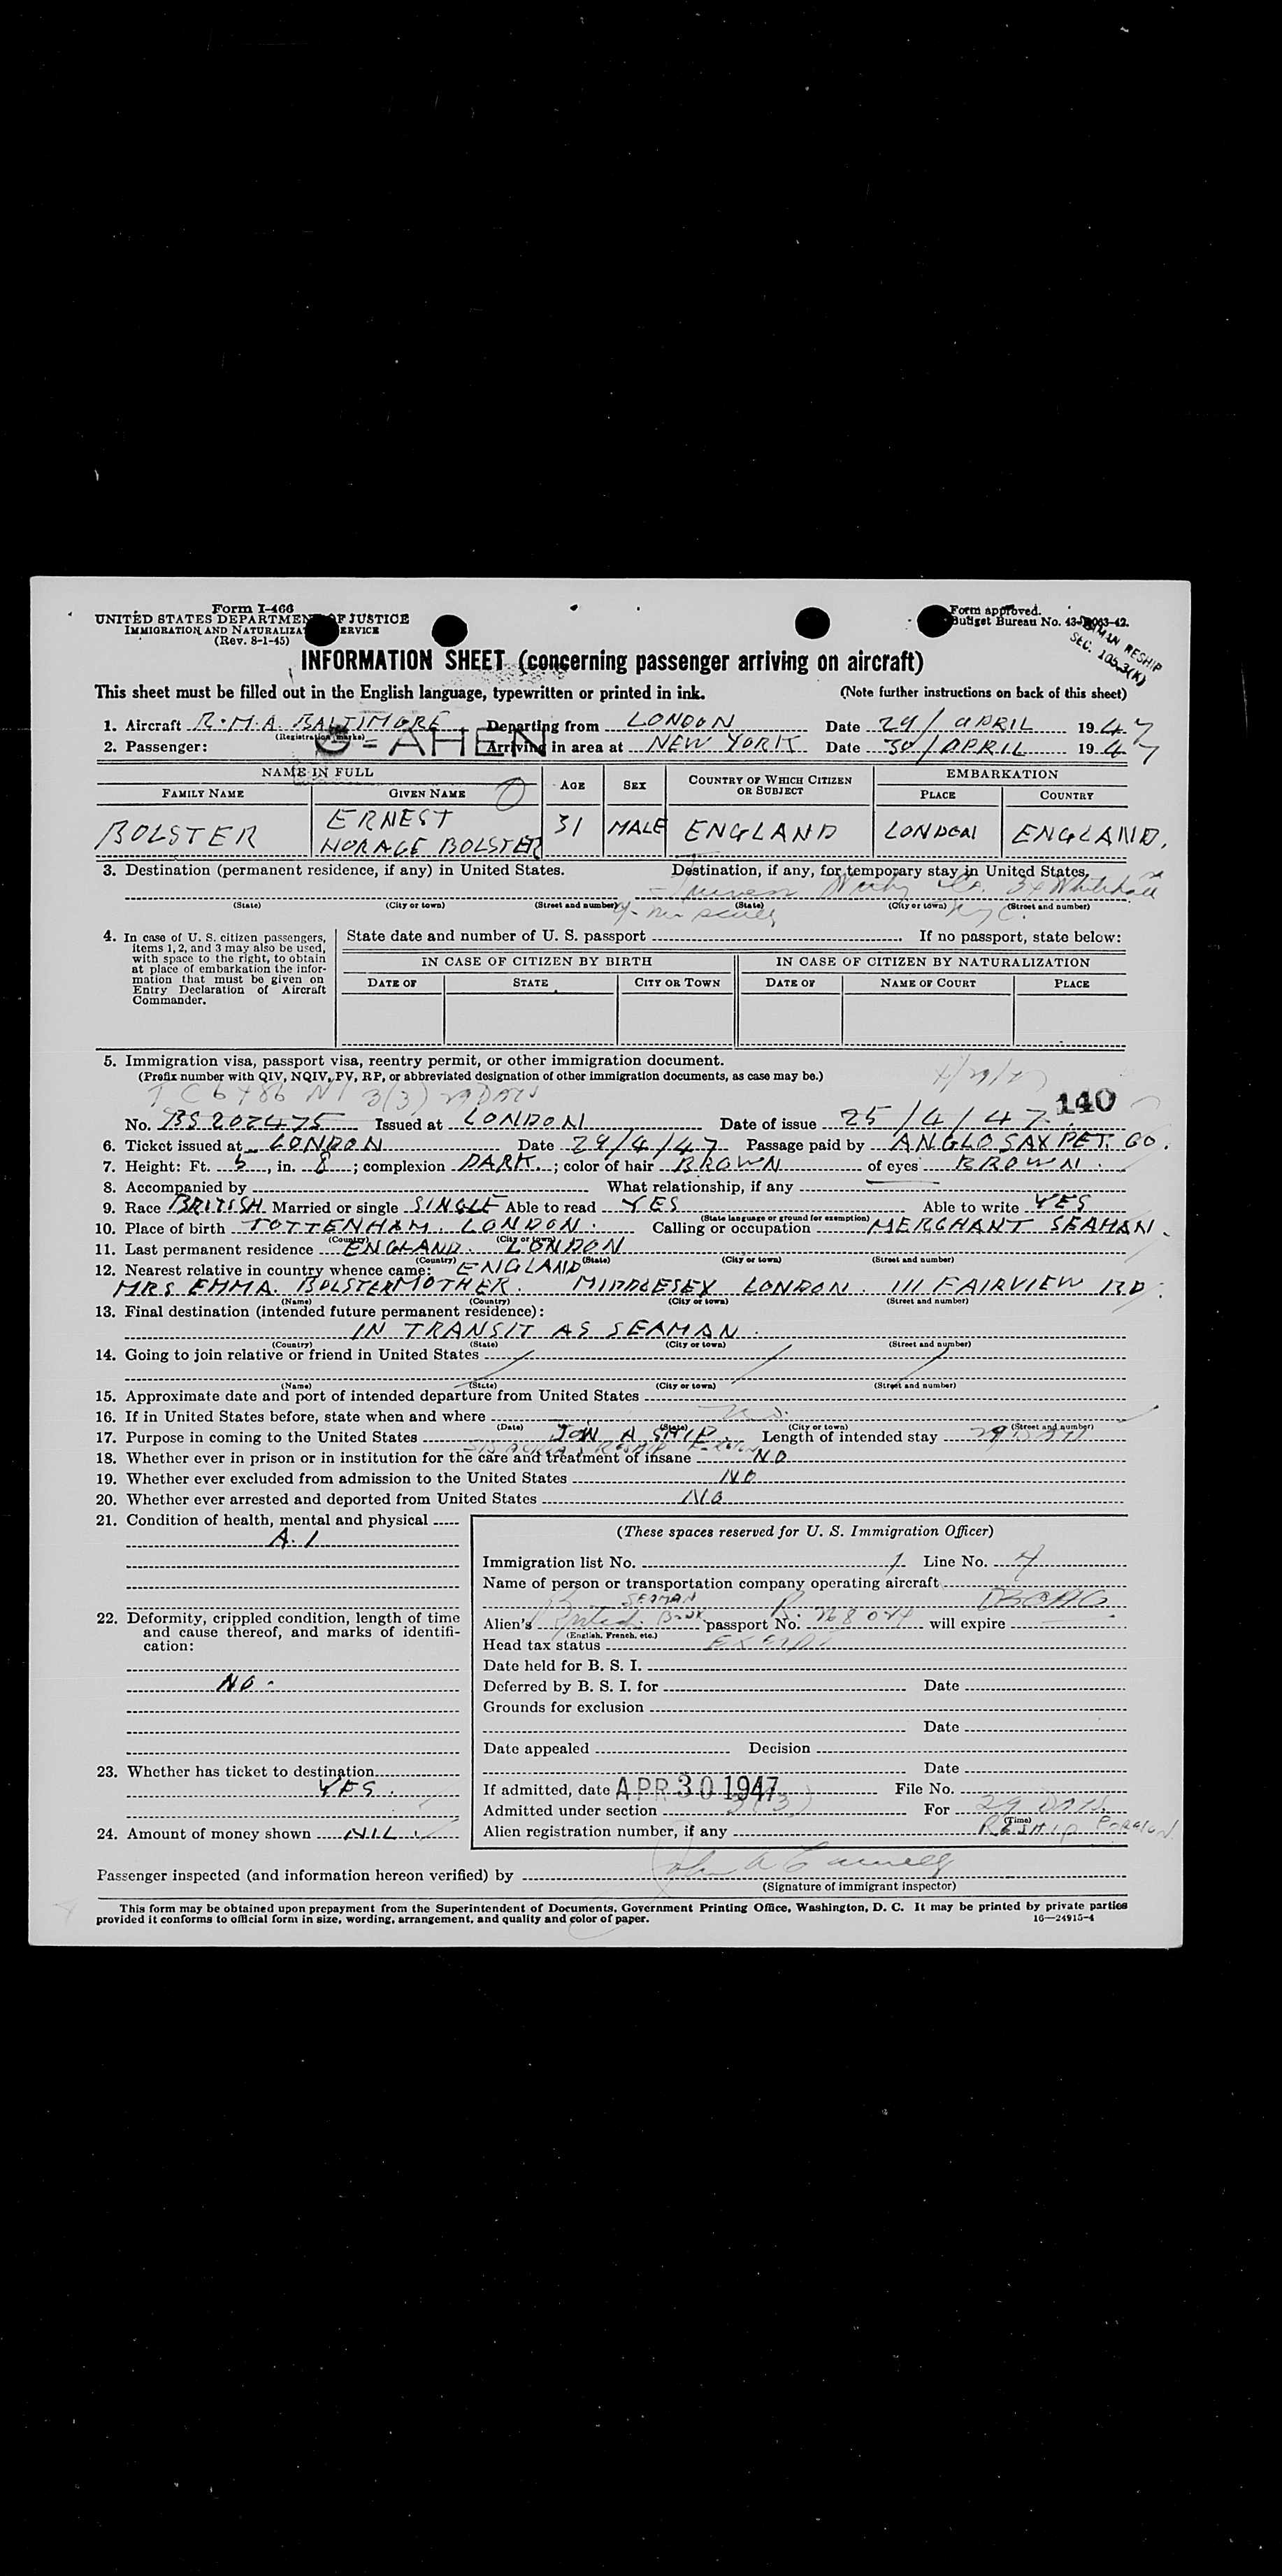 Form I-466
UNITED STATES DEPARTMENT OF JUSTICE
IMMIGRATION AND NATURALIZATION SERVICE
(Rev. 8-1-45)
Form approved.
Budget Bureau No. 43-R063-42.
SEAMAN RESHIP
SEC. 105.3(K)
INFORMATION SHEET (concerning passenger arriving on aircraft)
This sheet must be filled out in the English language, typewritten or printed in ink. (Note further instructions on back of this sheet)
1. Aircraft R.M.A. BALTIMORE Departing from LONDON Date 29/APRIL 1947
(Registration marks)
G-AHEN
2. Passenger: Arriving in area at NEW YORK Date 30/APRIL 1947
NAME IN FULL AGE SEX COUNTRY OF WHICH CITIZEN OR SUBJECT EMBARKATION
FAMILY NAME GIVEN NAME PLACE COUNTRY
BOLSTER ERNEST HORACE BOLSTER 31 MALE ENGLAND LONDON ENGLAND.
3. Destination (permanent residence, if any) in United States. Destination, if any, for temporary stay in United States.
Co. 34 Whitehall
(State) (City or town) (Street and number) (State) (City or town) (Street and number)
NYC
4. In case of U. S. citizen passengers, items 1, 2, and 3 may also be used, with space to the right, to obtain at place of embarkation the information that must be given on Entry Declaration of Aircraft Commander.
State date and number of U. S. passport If no passport, state below:
IN CASE OF CITIZEN BY BIRTH IN CASE OF CITIZEN BY NATURALIZATION
DATE OF STATE CITY OR TOWN DATE OF NAME OF COURT PLACE
5. Immigration visa, passport visa, reentry permit, or other immigration document.
(Prefix number with QIV, NQIV, PV, RP, or abbreviated designation of other immigration documents, as case may be.)
3(3) 29 DAYS
140
No. BS 202475 Issued at LONDON Date of issue 25/4/47.
6. Ticket issued at LONDON Date 29/4/47 Passage paid by ANGLO SAX PET. CO.
7. Height: Ft. 5, in. 8; complexion DARK.; color of hair BROWN of eyes BROWN.
8. Accompanied by What relationship, if any
9. Race BRITISH Married or single SINGLE Able to read YES Able to write YES
(State language or ground for exemption)
10. Place of birth TOTTENHAM. LONDON. Calling or occupation MERCHANT SEAMAN.
(Country) (City or town)
11. Last permanent residence ENGLAND. LONDON
(Country) (State) (City or town) (Street and number)
12. Nearest relative in country whence came: ENGLAND
MRS EMMA. BOLSTER MOTHER. MIDDLESEX LONDON. 111 FAIRVIEW RD.
(Name) (Country) (City or town) (Street and number)
13. Final destination (intended future permanent residence):
IN TRANSIT AS SEAMAN.
(Country) (State) (City or town) (Street and number)
14. Going to join relative or friend in United States
(Name) (State) (City or town) (Street and number)
15. Approximate date and port of intended departure from United States
16. If in United States before, state when and where
(Date) (State) (City or town) (Street and number)
17. Purpose in coming to the United States JOIN A SHIP Length of intended stay 29 DAYS
18. Whether ever in prison or in institution for the care and treatment of insane NO
19. Whether ever excluded from admission to the United States NO
20. Whether ever arrested and deported from United States NO
21. Condition of health, mental and physical
A.1
22. Deformity, crippled condition, length of time and cause thereof, and marks of identification:
NO.
23. Whether has ticket to destination
YES.
24. Amount of money shown NIL.
(These spaces reserved for U. S. Immigration Officer)
Immigration list No. 1 Line No. 4
Name of person or transportation company operating aircraft
BOAC
SEAMAN
Alien's British Book passport No. will expire
(English, French, etc.)
Head tax status EXEMPT
Date held for B. S. I.
Deferred by B. S. I. for Date
Grounds for exclusion
Date
Date appealed Decision
Date
If admitted, date APR 30 1947 File No.
Admitted under section 3(3) For 29 DAYS
(Time)
Alien registration number, if any RESHIP FOREIGN
Passenger inspected (and information hereon verified) by
(Signature of immigrant inspector)
This form may be obtained upon prepayment from the Superintendent of Documents, Government Printing Office, Washington, D. C. It may be printed by private parties
provided it conforms to official form in size, wording, arrangement, and quality and color of paper. 16—24915-4